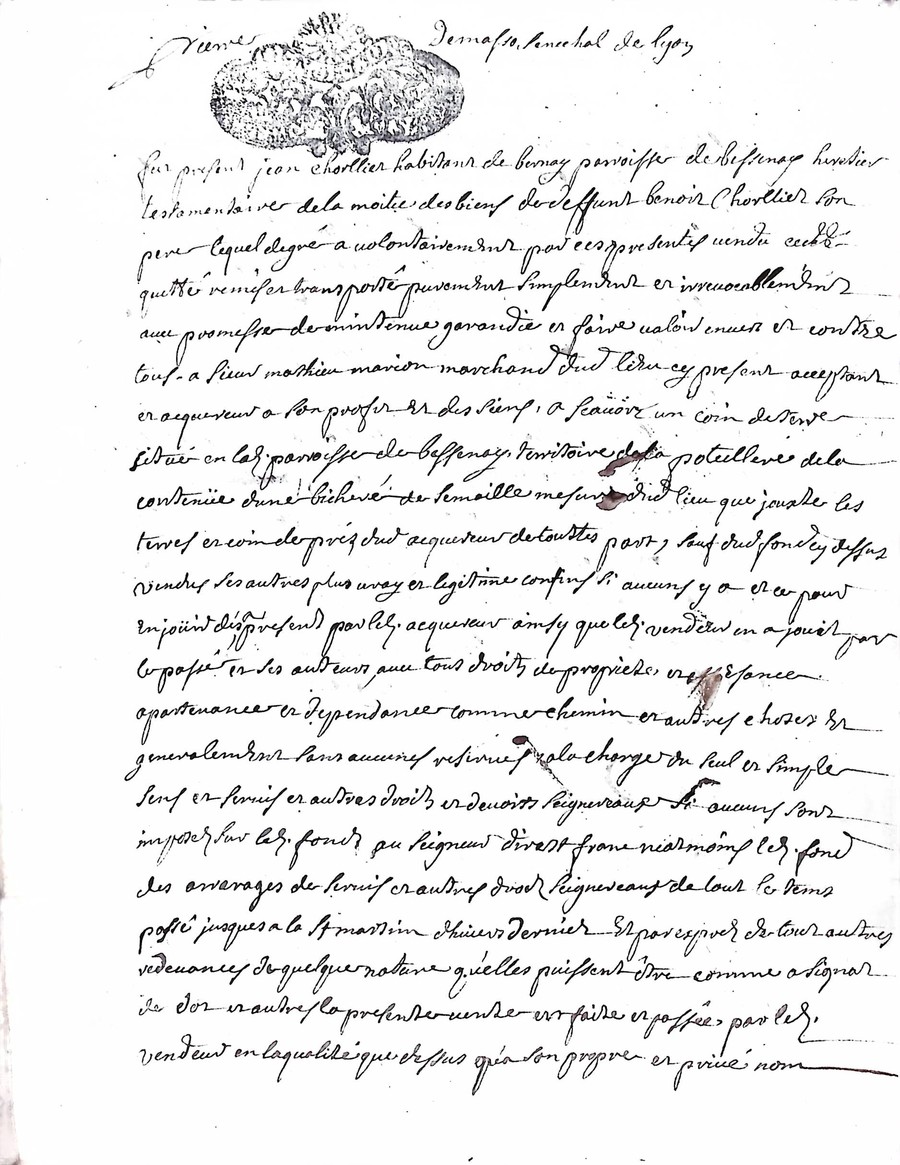 Pierre Demasso, senechal de lyon
fut present jean Chorllier habitant de bernay parroisse de bessenay heretier
testamentaire dela moitie des biens de deffunt benoit Chorllier son
pere lequel degré a volontairement par ces presentes vendu ceddé
quitté remis et transporté purement simplement et irrevocablement
avec promesse de mintenue garandie et faire valoir envers et contre
tous a sieur mathieu marion marchand dud lieu cy present acceptant
et acquereur a son profit et des siens, a scavoir un coin de terre
situé en lad. parroisse de bessenay, territoire dela poteillere dela
contenüe dune bicheré de semaille mesure dud lieu que jouxte les
terres et coin de préz dud acquereur de touttes part, sauf dud fond cy dessus
vendus ses autres plus vray et legitime confins si aucuns y a et ce pour
En joüir dés present par led. acquereur ainsy que led. vendeur en a jouit par
le passé et ses auteurs avec tous droits de proprietes et
apartenance et dependance comme chemin et autres choses Et
generalement sans aucunes reserves a la charge du seul et simple
sens et servis et autres droits et devoirs seigneureaux si aucuns sont
imposés sur led. fonds au seigneur direct franc neatmoins led. fond
des arrerages de servis et autres droits seigneureaux de tout le tems
passé jusques a la St martin dhivers dernier Et par exprés de tout autres
redevances de quelque nature qu'elles puissent être comme asignat
de dot et autres la presente vente est faite et passée, par led.
vendeur en la qualité que dessus qu'a son propre et privé nom